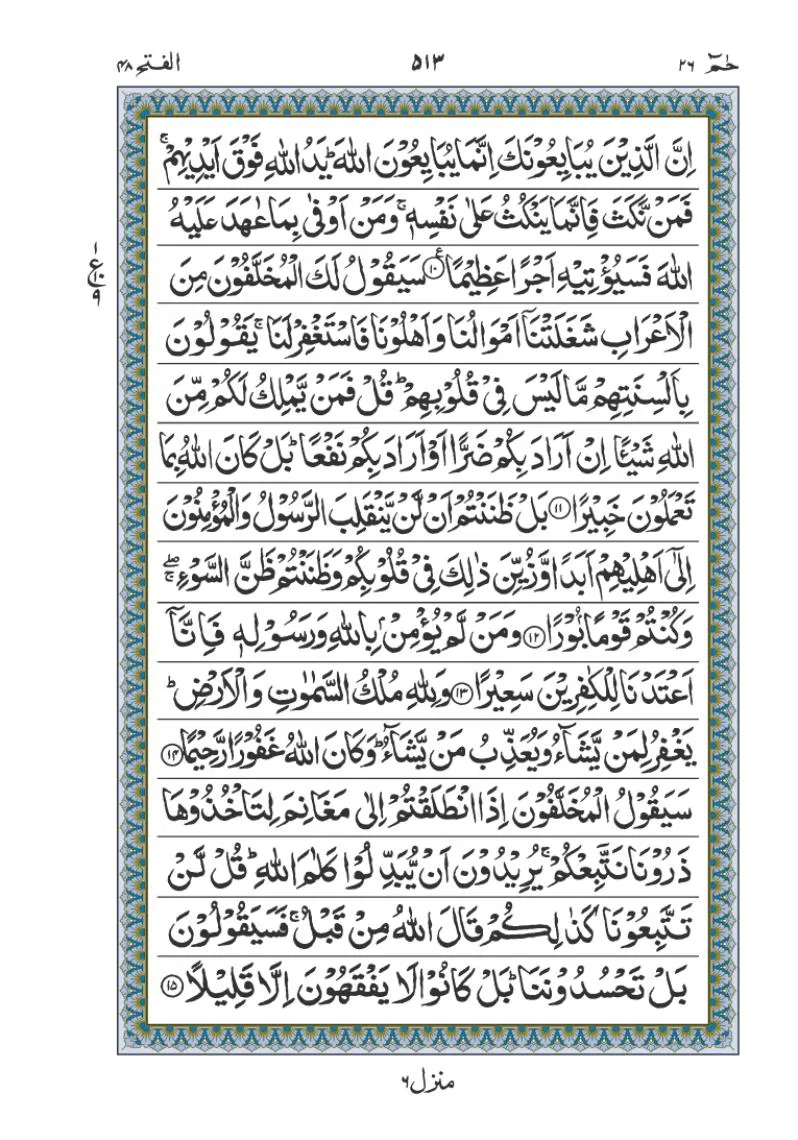 حٰمٓ ۲۶
۵۱۳
الفتح ۴۸
اِنَّ الَّذِيْنَ يُبَايِعُوْنَكَ اِنَّمَا يُبَايِعُوْنَ اللّٰهَ ؕ يَدُ اللّٰهِ فَوْقَ اَيْدِيْهِمْ ۚ
فَمَنْ نَّكَثَ فَاِنَّمَا يَنْكُثُ عَلٰى نَفْسِهٖ ۚ وَمَنْ اَوْفٰى بِمَا عٰهَدَ عَلَيْهُ
اللّٰهَ فَسَيُؤْتِيْهِ اَجْرًا عَظِيْمًا ﴿۱۰﴾ سَيَقُوْلُ لَكَ الْمُخَلَّفُوْنَ مِنَ
الْاَعْرَابِ شَغَلَتْنَاۤ اَمْوَالُنَا وَاَهْلُوْنَا فَاسْتَغْفِرْ لَنَا ۚ يَقُوْلُوْنَ
بِاَلْسِنَتِهِمْ مَّا لَيْسَ فِيْ قُلُوْبِهِمْ ؕ قُلْ فَمَنْ يَّمْلِكُ لَكُمْ مِّنَ
اللّٰهِ شَيْـًٔا اِنْ اَرَادَ بِكُمْ ضَرًّا اَوْ اَرَادَ بِكُمْ نَفْعًا ؕ بَلْ كَانَ اللّٰهُ بِمَا
تَعْمَلُوْنَ خَبِيْرًا ﴿۱۱﴾ بَلْ ظَنَنْتُمْ اَنْ لَّنْ يَّنْقَلِبَ الرَّسُوْلُ وَالْمُؤْمِنُوْنَ
اِلٰۤى اَهْلِيْهِمْ اَبَدًا وَّزُيِّنَ ذٰلِكَ فِيْ قُلُوْبِكُمْ وَظَنَنْتُمْ ظَنَّ السَّوْءِ ۖۚ
وَكُنْتُمْ قَوْمًاۢ بُوْرًا ﴿۱۲﴾ وَمَنْ لَّمْ يُؤْمِنْۢ بِاللّٰهِ وَرَسُوْلِهٖ فَاِنَّاۤ
اَعْتَدْنَا لِلْكٰفِرِيْنَ سَعِيْرًا ﴿۱۳﴾ وَلِلّٰهِ مُلْكُ السَّمٰوٰتِ وَالْاَرْضِ ؕ
يَغْفِرُ لِمَنْ يَّشَآءُ وَيُعَذِّبُ مَنْ يَّشَآءُ ؕ وَكَانَ اللّٰهُ غَفُوْرًا رَّحِيْمًا ﴿۱۴﴾
سَيَقُوْلُ الْمُخَلَّفُوْنَ اِذَا انْطَلَقْتُمْ اِلٰى مَغَانِمَ لِتَاْخُذُوْهَا
ذَرُوْنَا نَتَّبِعْكُمْ ۚ يُرِيْدُوْنَ اَنْ يُّبَدِّلُوْا كَلٰمَ اللّٰهِ ؕ قُلْ لَّنْ
تَتَّبِعُوْنَا كَذٰلِكُمْ قَالَ اللّٰهُ مِنْ قَبْلُ ۚ فَسَيَقُوْلُوْنَ
بَلْ تَحْسُدُوْنَنَا ؕ بَلْ كَانُوْا لَا يَفْقَهُوْنَ اِلَّا قَلِيْلًا ﴿۱۵﴾
۱
ع
۱۰
۹
منزل ۶